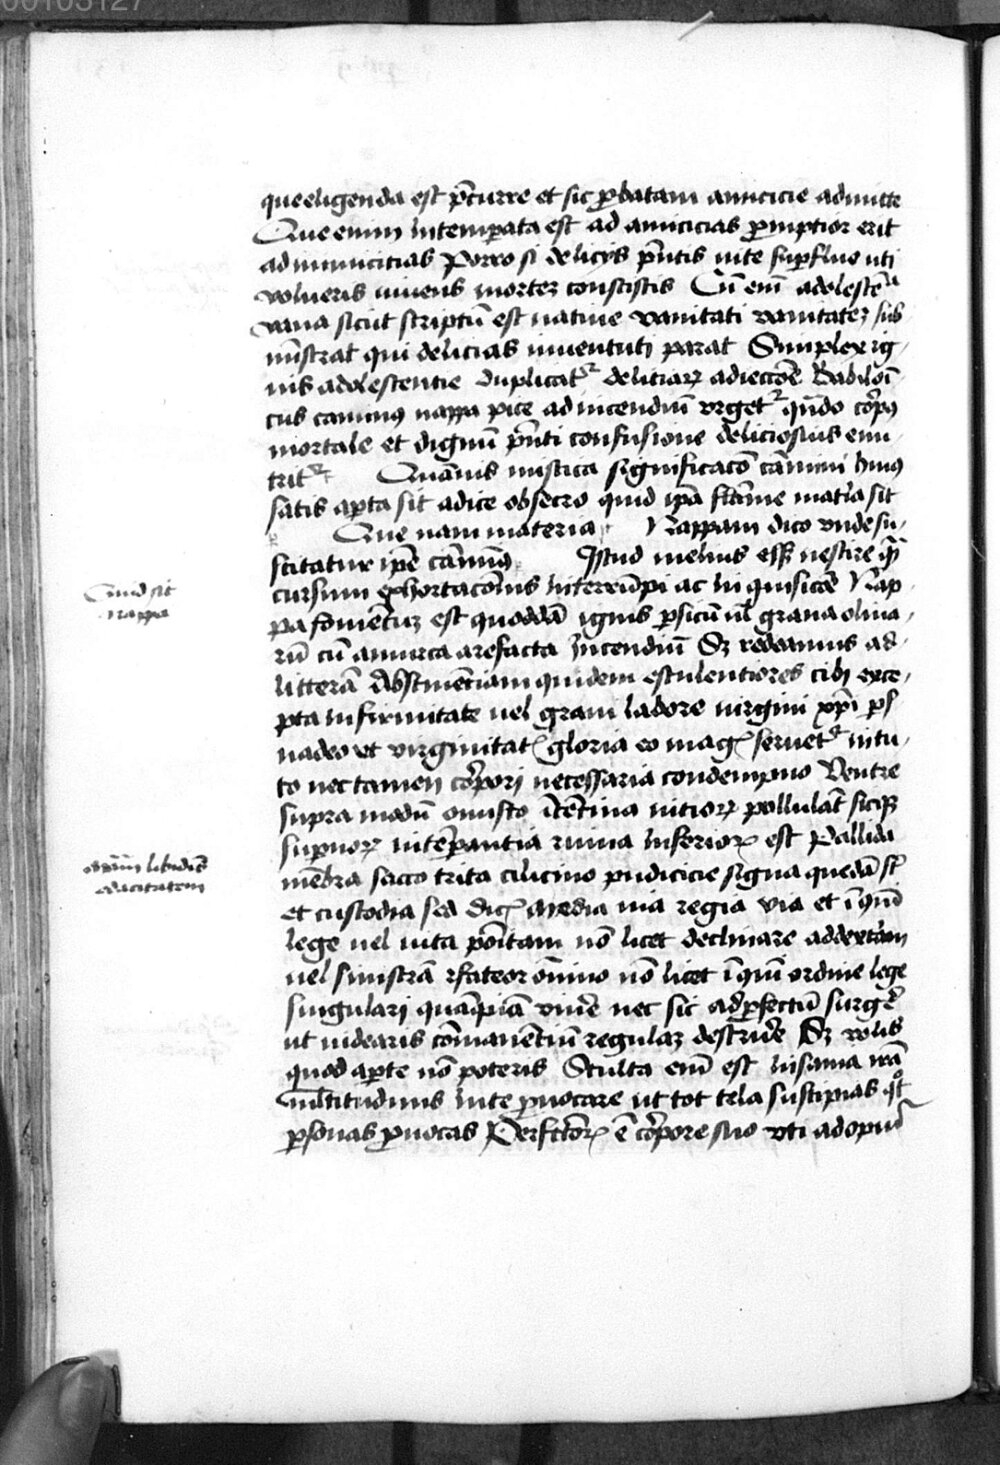 00103127
que eligenda est p̄currre et sic ꝓbatam amicicie admitte
Que enim intemꝑata est ad amicicias ꝓmptior erit
ad inimicitias Porro si delicijs p̄ntis uite suꝑfluo uti
volueris iuuenis mortez consciscis Cū em̄ adolescēa
vana sicut scriptū est natiue vanitati vanitatez sub
ministrat qui delicias iuuentuti parat Simplex ig
nis adolescentie duplicatr deliciaꝝ adiectōe Babiloī
cus caminꝯ nappa pice ad incendiū vrgetr qn̄do cōrpꝯ
mortale et dignū p̄nti confusione deliciosius enu
tritr Quāuis mistica significatō cāmini huiꝯ
satis aꝑta sit adice obsecro quid ip̄a flāme mat̄ia sit
Que nam materia Nappam dico unde su
scitatur ip̄e cāminꝯ Istud melius ess& nescire qā
cursum exhortacōnis interrūpi ac inquisicōe Nap
pa fomentuz est quoddā ignis ꝑsicū ul̄ grana oliua
rū cū amurca arefacta incendiū Sz redeamus ad
litterā Abstinēciam quidem esculentiores cibi exce
pta infirmitate uel graui labore uirgini xp̄i ꝑs
uadeo et virginitatꝭ gloria eo magꝭ seruetr in tu
to nec tamen cōrpori necessaria condempno Ventre
supra modū onusto īcētiua uitioꝝ pollulāt sicqꝫ
suꝑioꝝ intēꝑantia ruina inferioꝝ est Pallida
mēbra sacco trita cilicino pudicicie signa quedā s̄t
et custodia sed dicꝭ media uia regia via et ī qūi
lege uel iuta pōitam nō licet declinare ad dextram
uel sinistrā fateor om̄ino nō licet ī qūi ordine lege
singulari quāpiā viuēre nec sic ad ꝑfectū surgēr
ut uidearis cōmanētiū regulaz destruēre Sz volis
quod aꝑte nō poteris Stulta em̄ est insania irā
multitudinis in te ꝓuocare ut tot tela suscipias qt
ꝑsonas ꝓuocas Perfectoꝝ ē cōrpore suo vti ad opus
Quid sit
nappa
edacitatem